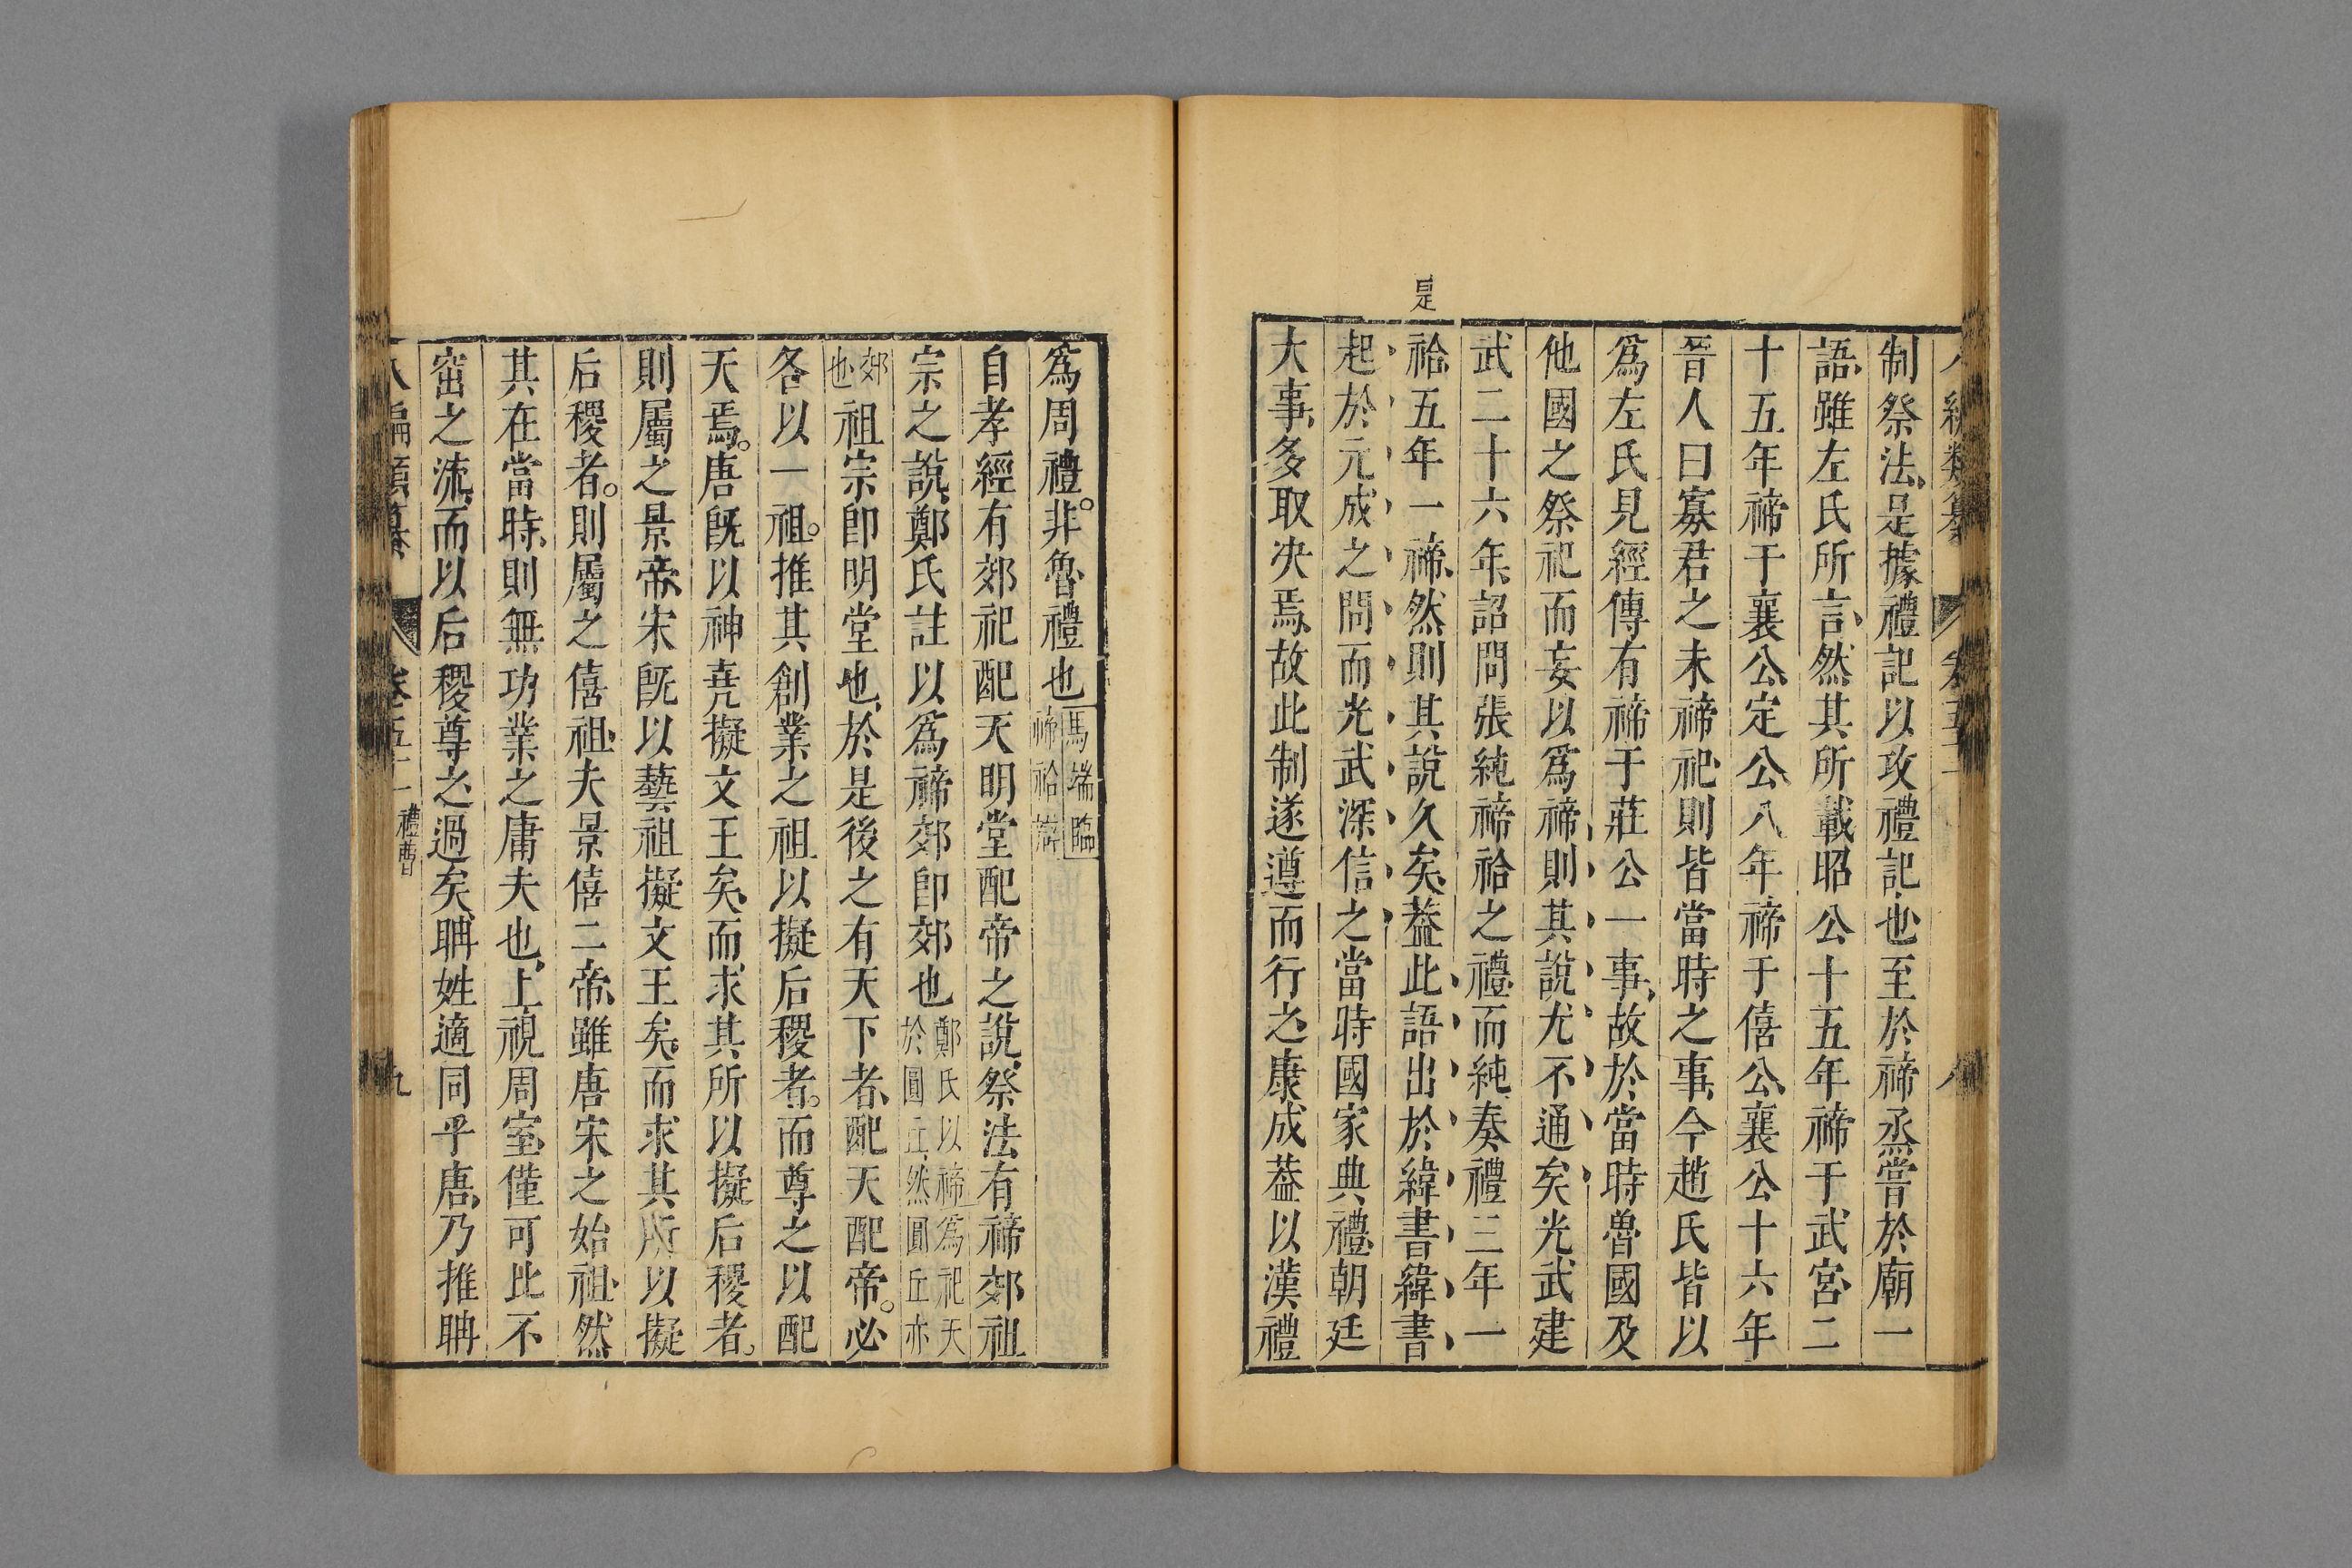 制祭法是據禮記以攻禮記也至於禘烝嘗於廟一
語雖左氏所言然其所載昭公十五年禘于武宮二
十五年禘于襄公定公八年禘于僖公襄公十六年
晉人曰寡君之未禘祀則皆當時之事今趙氏皆以
爲左氏見經傳有禘于莊公一事故於當時魯國及
他國之祭祀而妄以爲禘則其說尤不通矣光武建
武二十六年詔問張純禘祫之禮而純奏禮三年一
是
祫五年一禘然則其說久矣葢此語出於緯書緯書
起於元成之間而光武深信之當時國家典禮朝廷
大事多取决焉故此制遂遵而行之康成葢以漢禮
爲周禮。非魯禮也
馬端臨
禘祫辯
自孝經有郊祀配天明堂配帝之說祭法有禘郊祖
宗之說鄭氏註以爲禘郊卽郊也鄭氏以禘爲祀天
於圜丘然圜丘亦
郊
也祖宗卽明堂也於是後之有天下者配天配帝。必
各以一祖。推其創業之祖以擬后稷者。而尊之以配
天焉。唐旣以神堯擬文王矣而求其所以擬后稷者。
則屬之景帝宋旣以藝祖擬文王矣而求其所以擬
后稷者。則屬之僖祖夫景僖二帝雖唐宋之始祖然
其在當時則無功業之庸夫也上視周室僅可比不
窋之流而以后稷尊之過矣聃姓適同乎唐乃推聃
八編類纂 卷五十一 禮曹 九